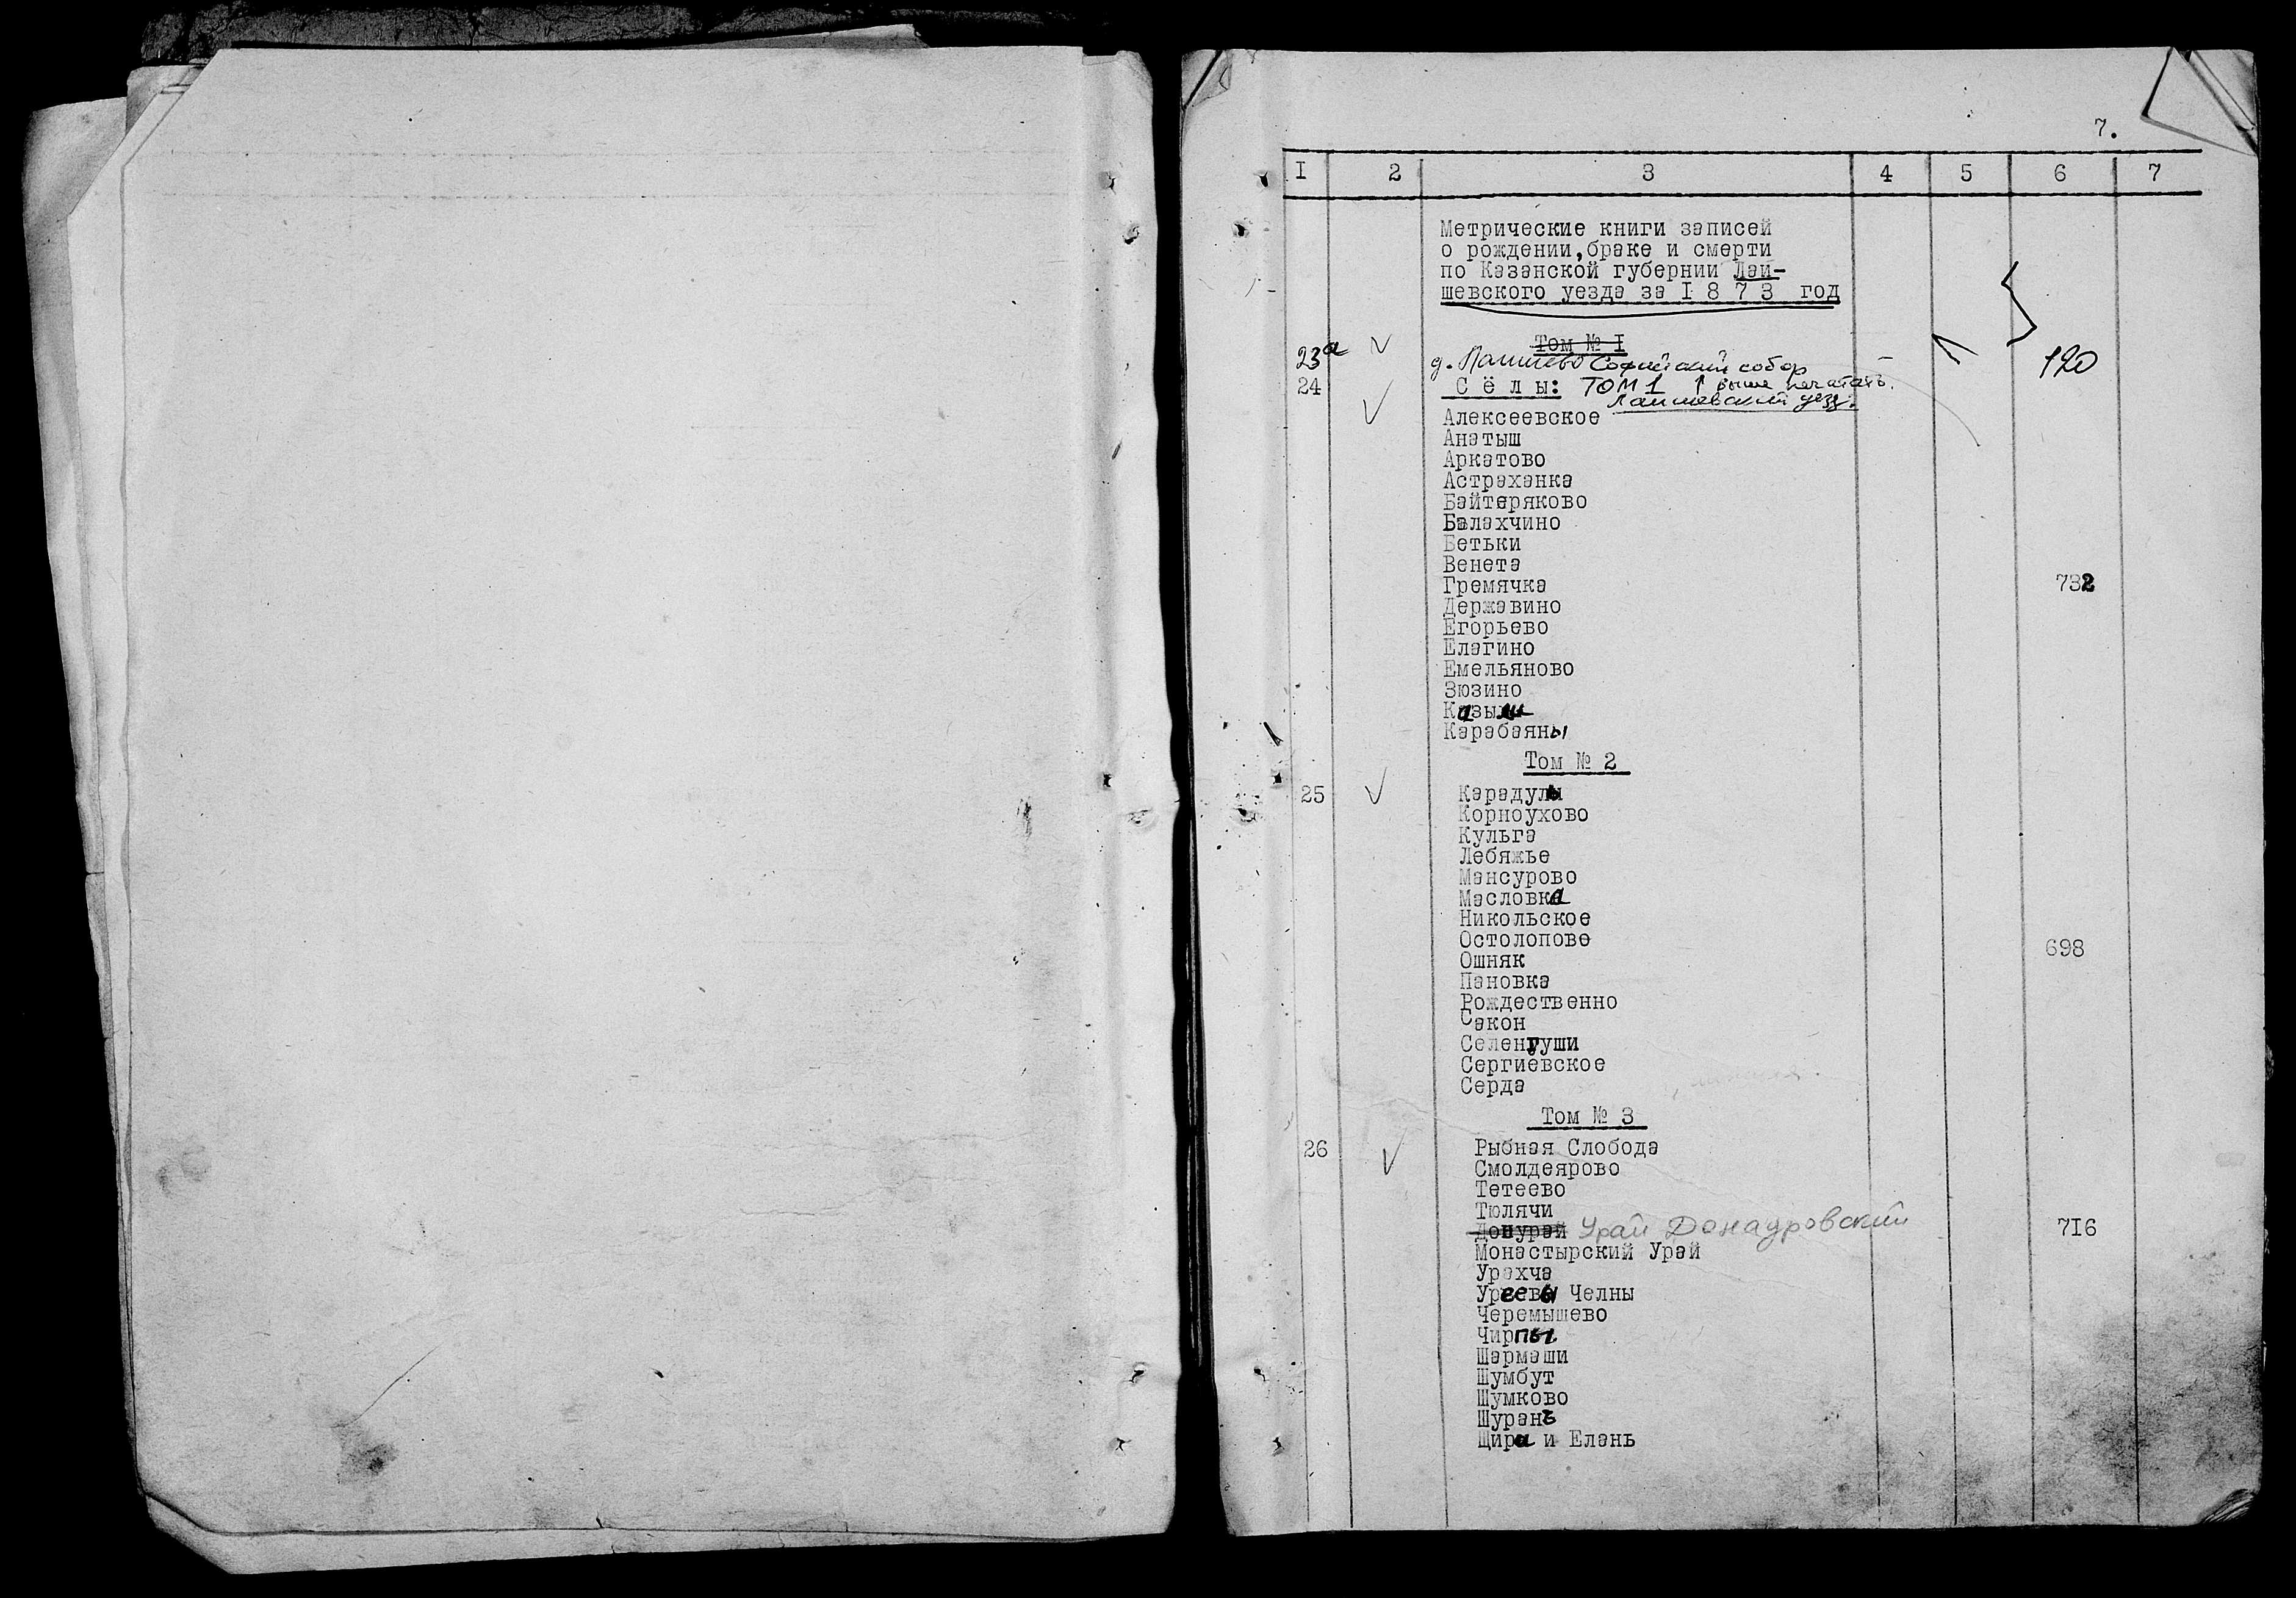 7.
I 2 3 4 5 6 7
Метрические книги записей
о рождении,браке и смерти
по Казанской губернии Лаи-
шевского уезда за I 8 7 3 год
Том № I
23а г. Лаишево Софийский собор 190
24 С ё л ы: ТОМ 1 ↑ выше печатать.
Лаишевский уезд.
Алексеевское
Анатыш
Аркатово
Астраханка
Байтеряково
Балахчино
Бетьки
Венета
Гремячка 732
Державино
Егорьево
Елагино
Емельяново
Зюзино
Казыли
Карабаяны
Том № 2
25 Карадулы
Корноухово
Кульга
Лебяжье
Мансурово
Масловка
Никольское
Остолопово
698
Ошняк
Пановка
Рождественно
Сакон
Селенгуши
Сергиевское
Серда
Том № 3
26 Рыбная Слобода
Смолдеярово
Тетеево
Тюлячи
Донурай Урай Донауровский 7I6
Монастырский Урай
Урахча
Уреевы Челны
Черемышево
Чирпы
Шармаши
Шумбут
Шумково
Шурань
Щира и Елань